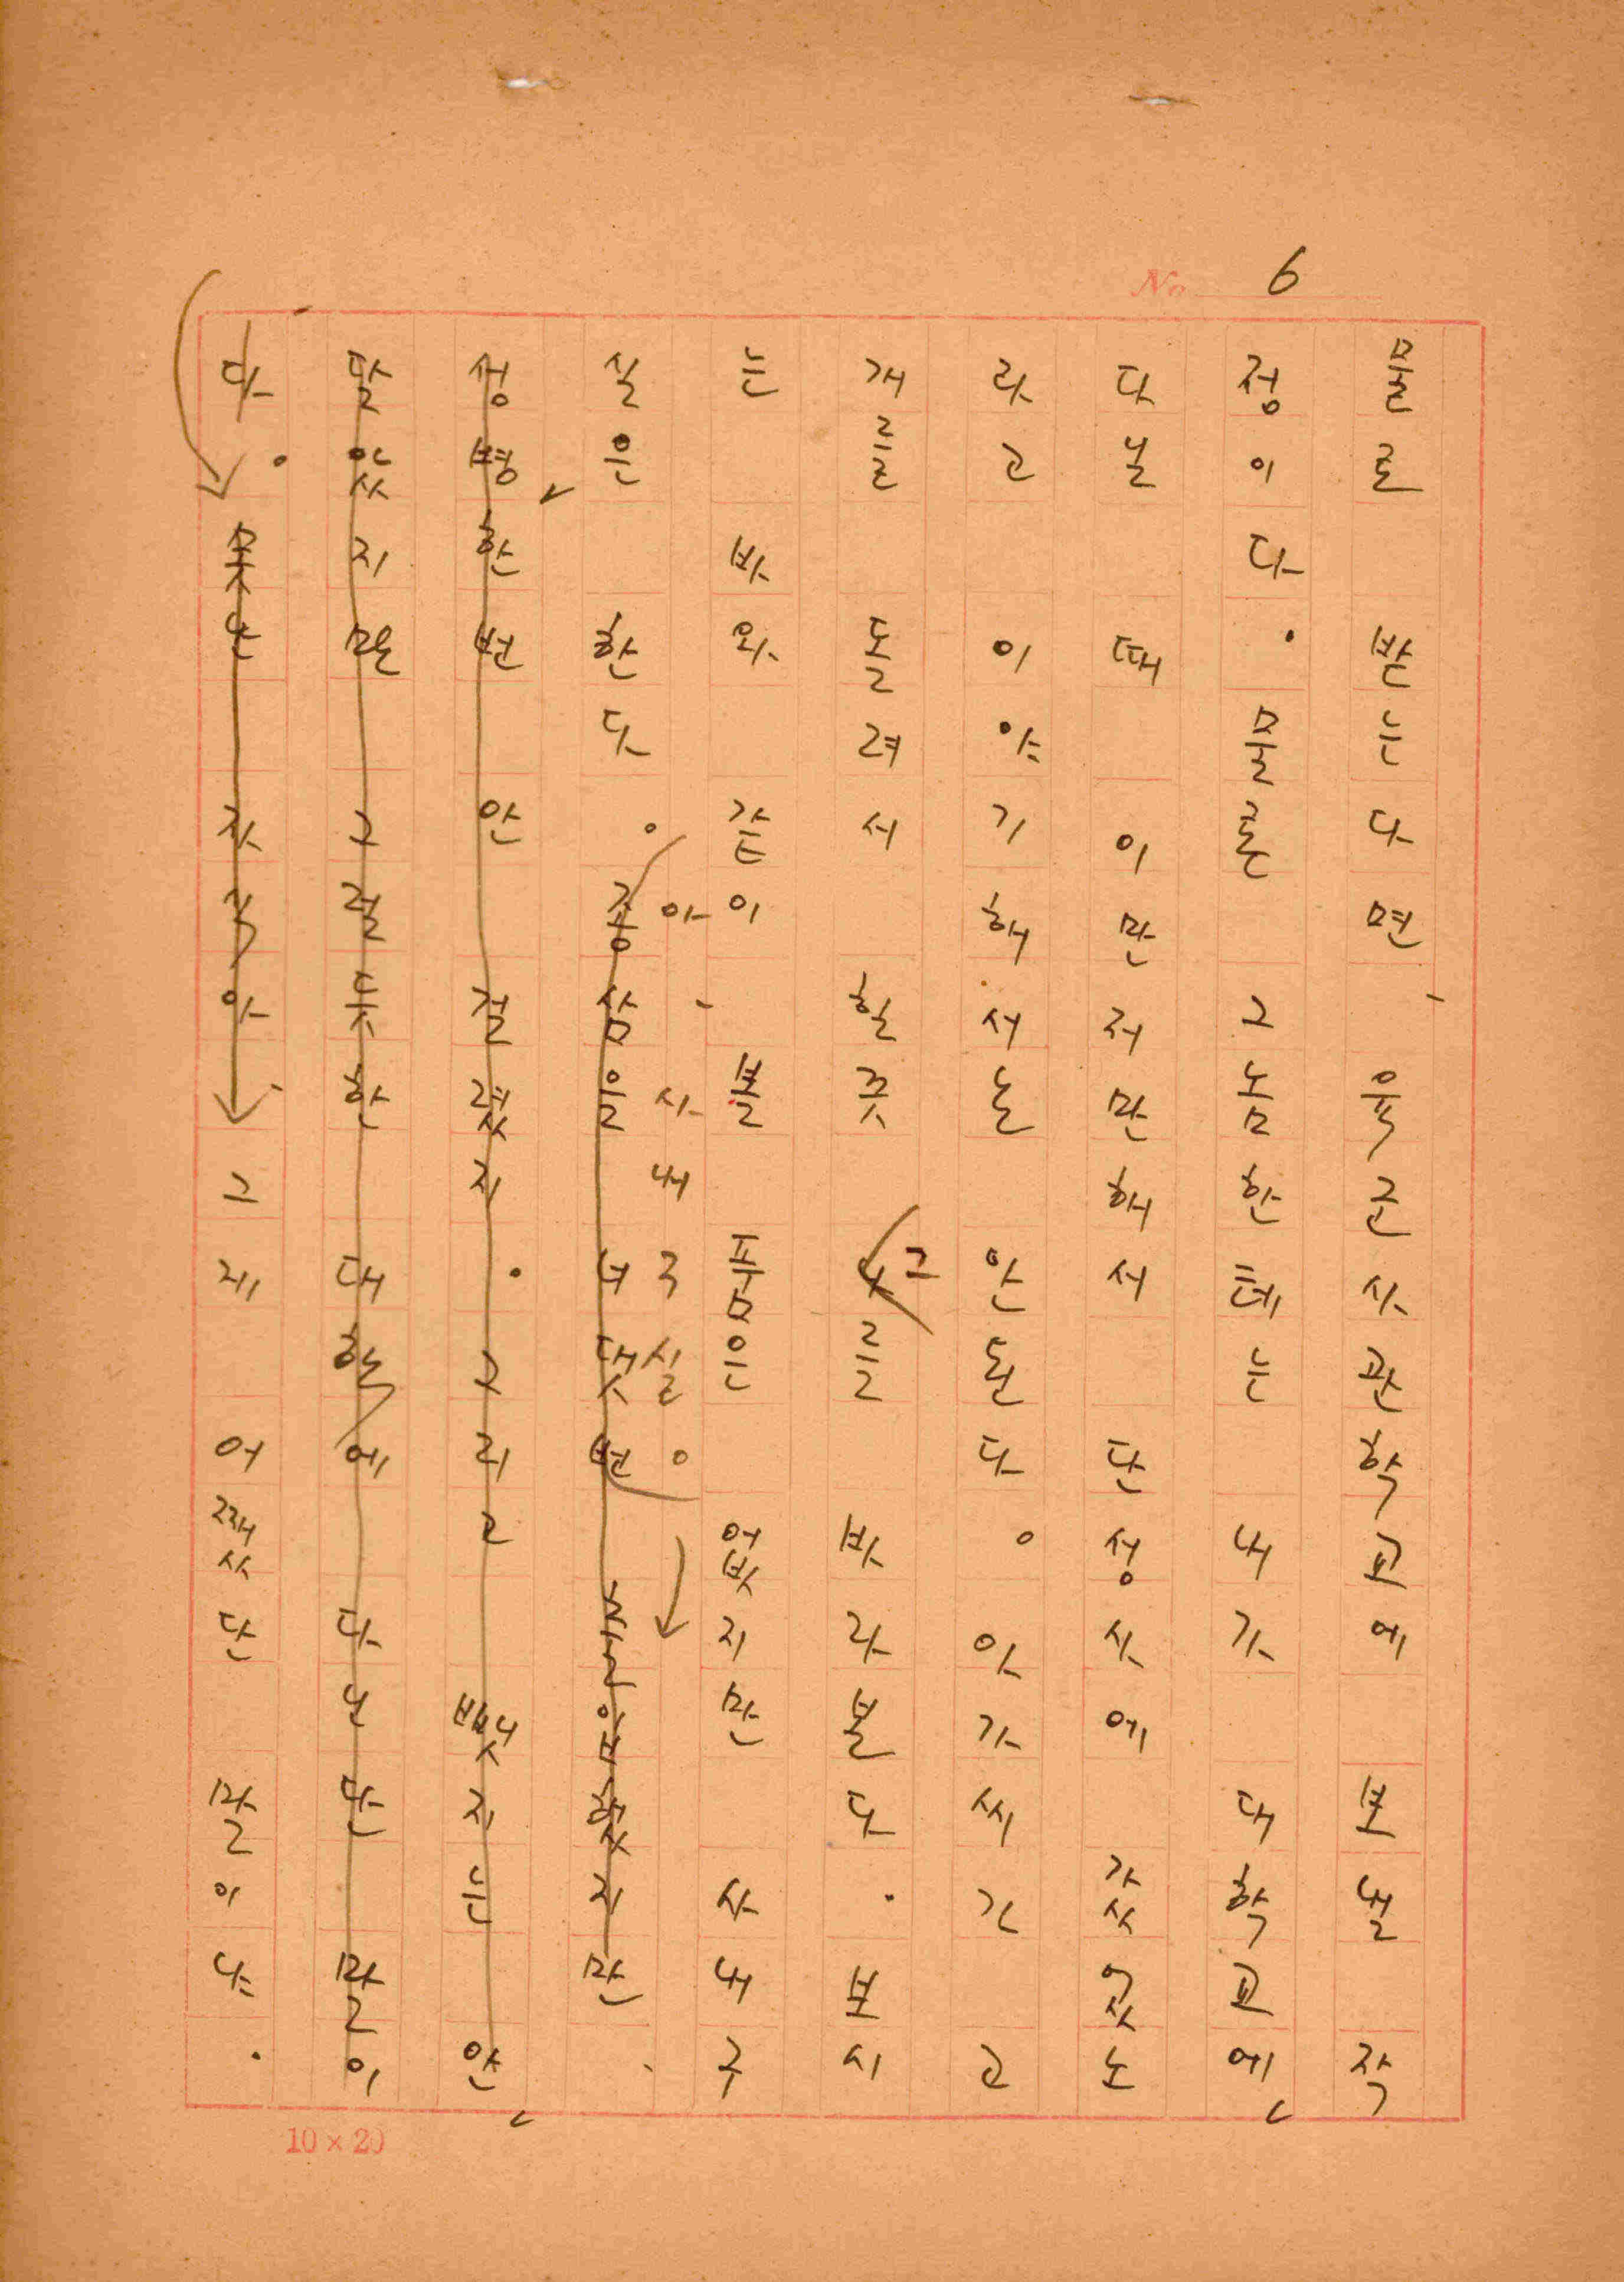 No 6
물론 받는다면、 육군사관학교에 보낼 작
정이다. 물론 그놈한테는 내가 대학교에
다닐 때 이만저만해서 단성사에 갔었노
라고 이야기해서는 안된다. 아가씨 간고
개를 돌려서 힐끗 그를 바라본다. 보시
는 바와 같이、 볼 품은 없지만 사내구
실은 한다. 중삼을 너댓번 치른
성병 한번 안 걸렸지. 그리고 뱃지는 안
달았지만 그럴듯한 대학에 다닌단 말이
다. 못난 자식아、 그게 어쨌단 말이냐.
아 사내구실이
10×20